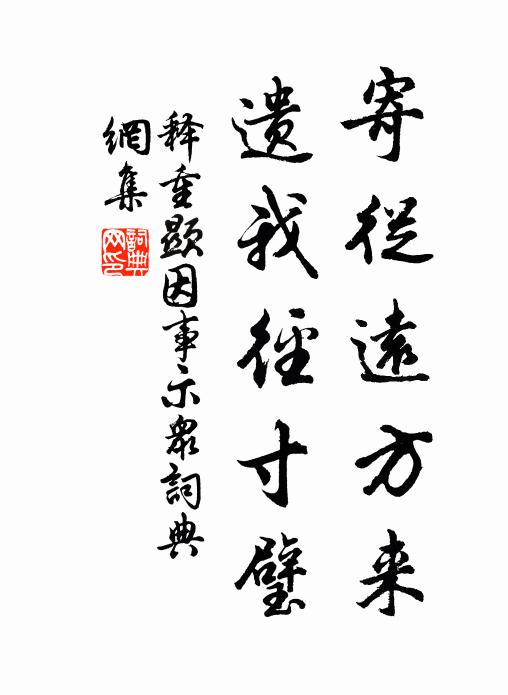 寄從遠方来
遺我徑寸璧
释重顯因事示眾詞典
網集
詞典
网印